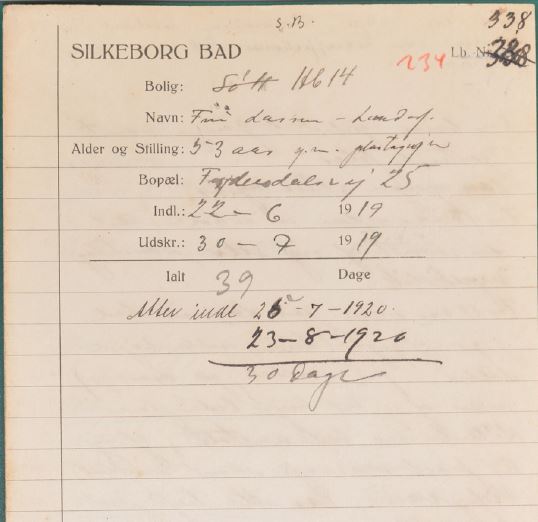 S.B.
338
SILKEBORG BAD
234 Lb. Nr.
Bolig: 14
Navn: Frü Lassen -
Alder og Stilling: 53 aar
Bopæl: 25
Indl.: 22 - 6 1919
Udskr.: 30 - 7 1919
Ialt 39 Dage
Atter indl 26 - 7 - 1920.
23 - 8 - 1920
30 Dage